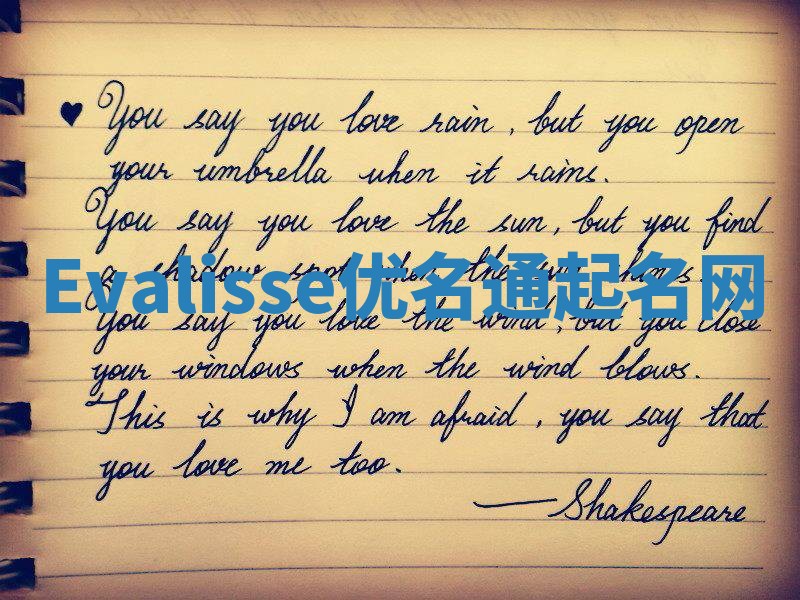 ♥ You say you love rain, but you open
your umbrella when it rains.
You say you love the sun, but you find
a shadow spot when the sun shines.
Evalisse优名通起名网
You say you love the wind, but you close
your windows when the wind blows.
This is why I am afraid, you say that
you love me too.
—Shakespeare